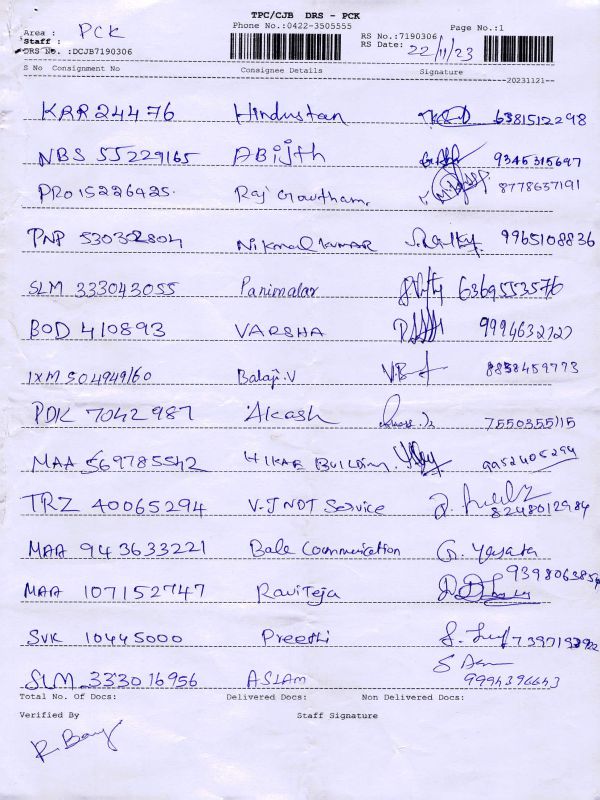 TPC/CJB DRS - PCK
Phone No.:0422-3505555 Page No.:1
Area : PCK RS No.:7190306
Staff : RS Date: 22/11/23
DRS No. :DCJB7190306
S No Consignment No Consignee Details Signature
20231121
KRR 24476 Hindustan 6381512298
NBS 55229165 ABijth 9345315697
PRO 15226425 Raj Gowtham. 8778637191
PNP 530332804 Nikmal kumar 9965108836
SLM 333043055 Parimalar 6369553576
BOD 410893 VARSHA 9994632727
IXM 504949160 Balaji.V V.B 8838459773
PDK 7042987 Akash 7550355115
MAA 569785542 HIKAE BUILDING. 9952405294
TRZ 40065294 V-J NDT Service 8248012984
MAA 943633221 Bale Communication G. Yasata
MAA 107152747 RaviTeja 9398063854
SVK 10445000 Preethi
SLM 333016956 ASLAM 9994396643
Total No. Of Docs: Delivered Docs: Non Delivered Docs:
Verified By Staff Signature